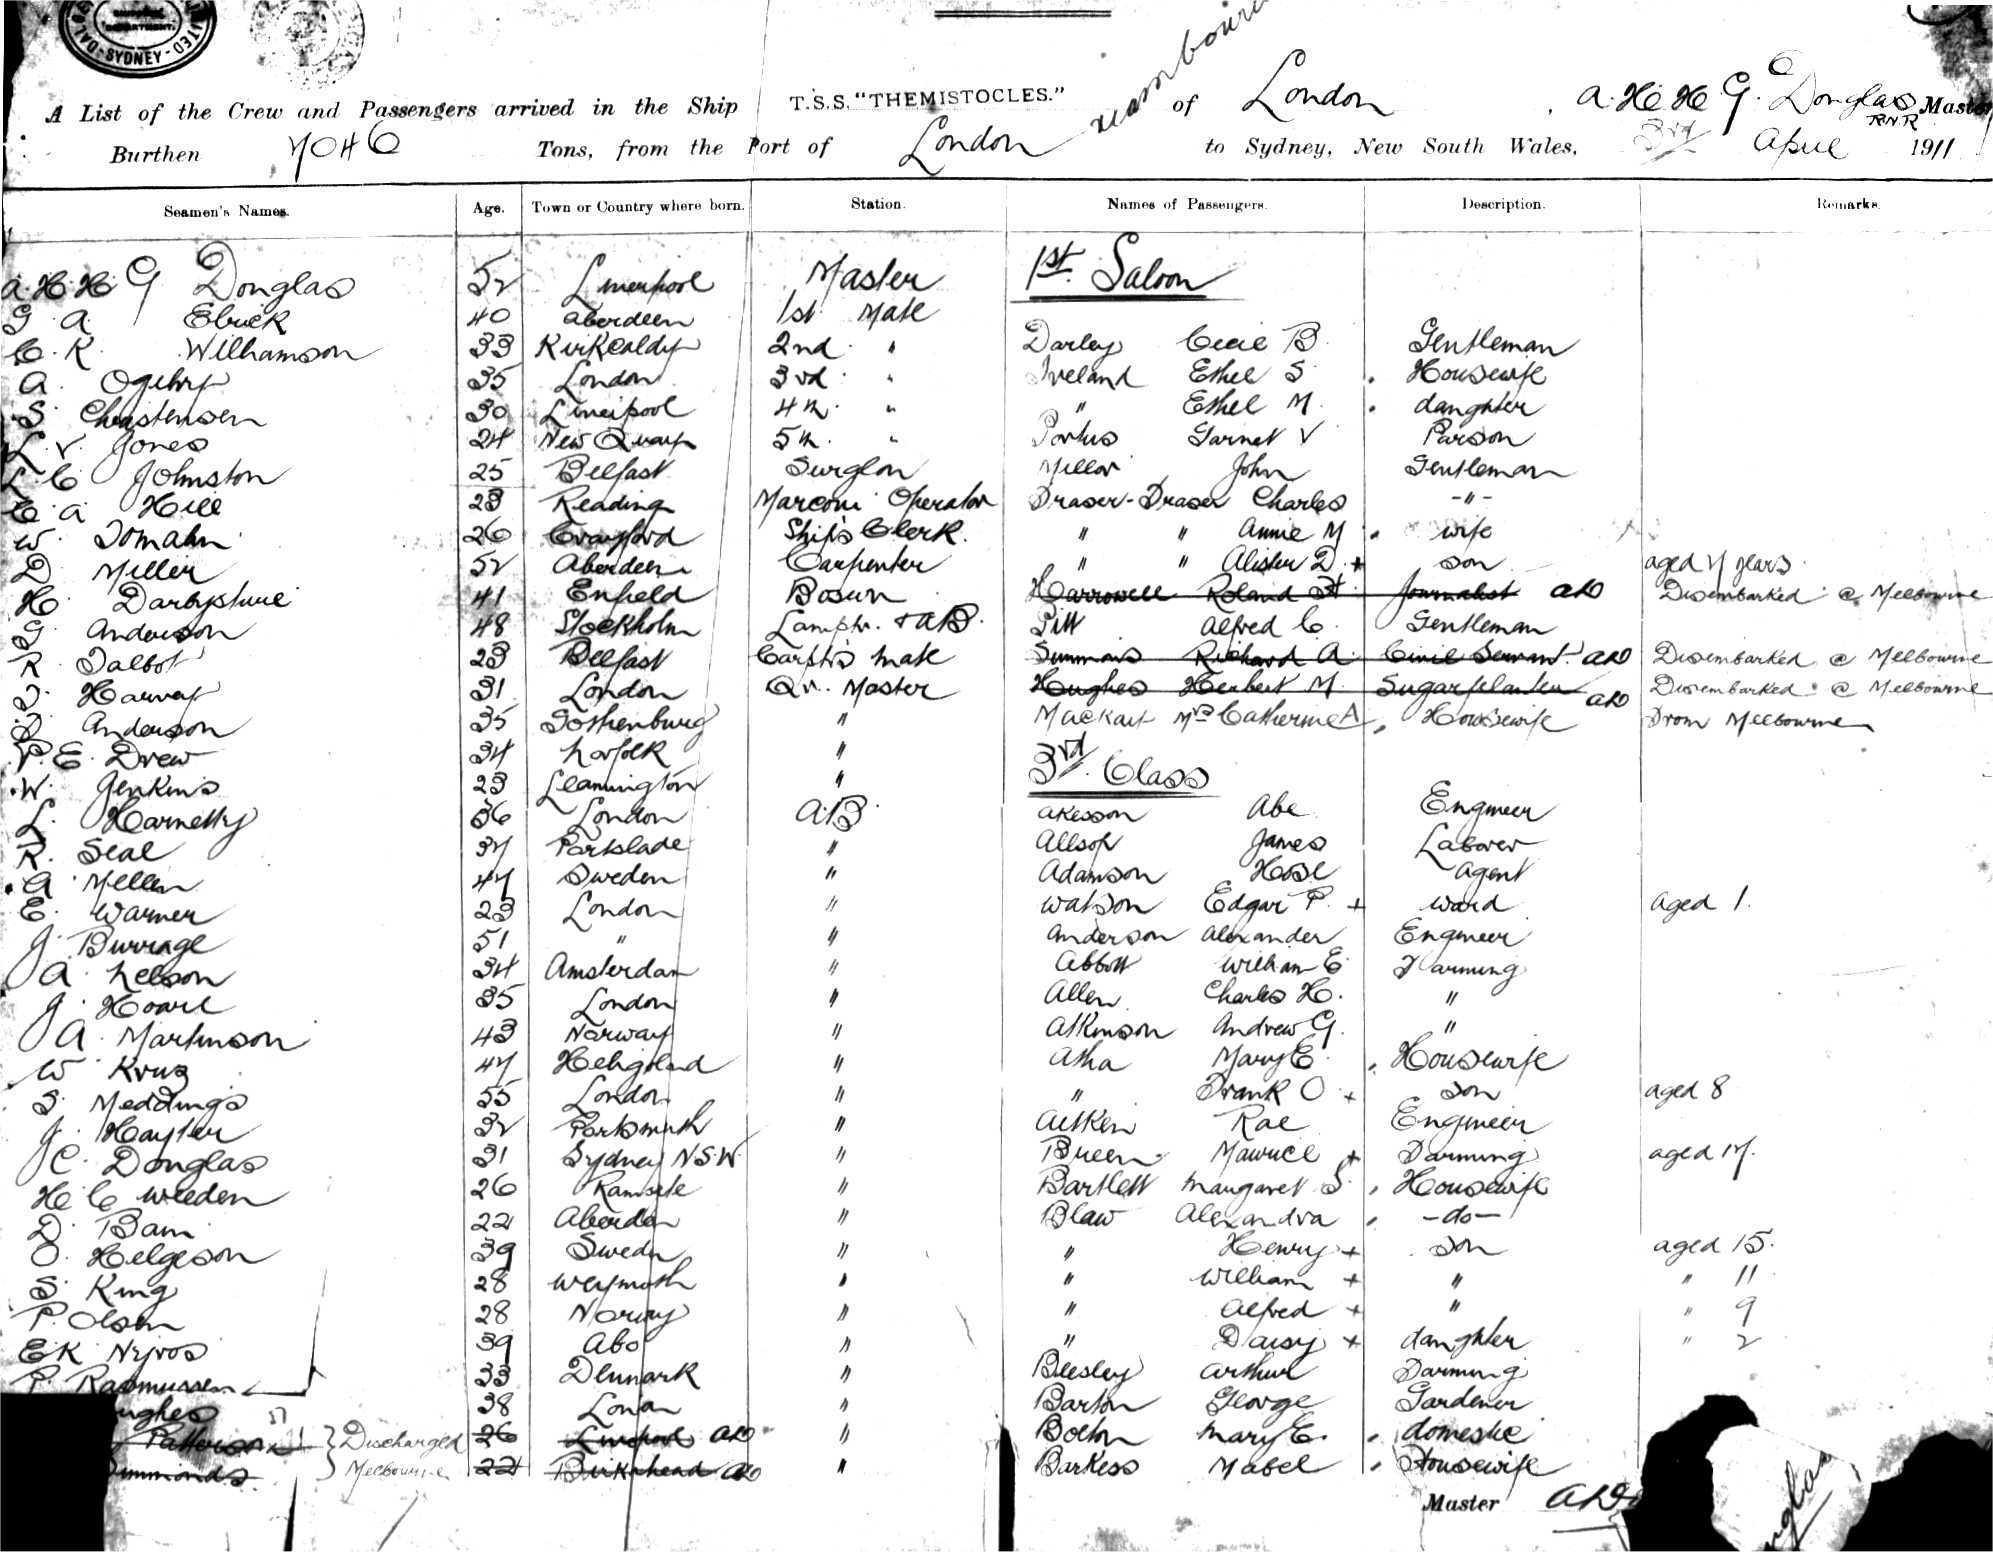 SYDNEY
A List of the Crew and Passengers arrived in the Ship T.S.S. "THEMISTOCLES." of London, A.H.H.G. Douglas R.N.R Master
Burthen 7046 Tons, from the Port of London to Sydney, New South Wales, 3rd April 1911
Seamen's Names. Age. Town or Country where born. Station. Names of Passengers. Description. Remarks.
1st Saloon
A.H.H.G Douglas 52 Liverpool Master
G A 40 Aberdeen 1st Mate
C. R. Williamson 33 Kirkcaldy 2nd " Darley Cecil B. Gentleman
A. Ogilvy 35 London 3rd " Ireland Ethel S Housewife
S. Christensen 30 Liverpool 4th " " Ethel M. daughter
L. V. Jones 24 New Quay 5th " Portus Garnet V Parson
L. C Johnston 25 Belfast Surgeon Millar John Gentleman
C. A Hill 23 Reading Marconi Operator Fraser-Fraser Charles -"-
W. Tomalin 26 Crayford Ship's Clerk. " " Annie M wife
D Miller 52 Aberdeen Carpenter " " Alister D + son aged 7 years
H. Darbyshire 41 Enfield Bosun Harrowell Roland H. Journalist Disembarked @ Melbourne
G Anderson 48 Stockholm Lamptr. + AB. Pitt Alfred C. Gentleman
R. Talbot 23 Belfast Carptr's Mate Simmons Richard A. Civil Servant Disembarked @ Melbourne
T. Harvey 31 London Qr. Master Hughes Herbert M. Sugarplanter Disembarked @ Melbourne
Anderson 35 Gothenburg " Mackay Mrs Catherine A Housewife From Melbourne
P. E. Drew 34 Norfolk "
3rd Class
W. Jenkins 23 Leamington "
L. Harnetty 36 London A.B. Akesson Abe Engineer
R. Seal 37 Portslade " Allsop James Laborer
A. Mellen 47 Sweden " Adamson Agent
E. Warner 23 London " Watson Edgar P. + ward aged 1.
J. Burrage 51 " " Anderson Alexander Engineer
A. Nelson 34 Amsterdam " Abbott William E. Farming
J. Hoare 35 London " Allen Charles H. "
A. Martinson 43 Norway " Atkinson Andrew G. "
W Krus 47 Heligoland " Atha Mary E. Housewife
S. Meddings 55 London " " Frank O + son aged 8
J. Hayter 32 Portsmouth " Aitken Rae Engineer
J C. Douglas 31 Sydney N.S.W. " Breen Maurice + Farming aged 17.
H C Weeden 26 " Bartlett Margaret S. Housewife
D. Bain 22 Aberdeen " Blaw Alexandra -do-
O. Helgeson 39 Sweden " " Henry + son aged 15.
S. King 28 Weymouth " " William + " " 11
P. Olsen 28 Norway " " Alfred + " " 9
E K 39 Abo " " Daisy + daughter " 2
P. Rasmussen 33 Denmark " Beesley Arthur Farming
ughes 38 London " Barton George Gardener
Patterson Discharged 26 Liverpool " Bolton Mary E. domestic
immonds. Melbourne 22 Birkenhead " Barkess Mabel Housewife
Master